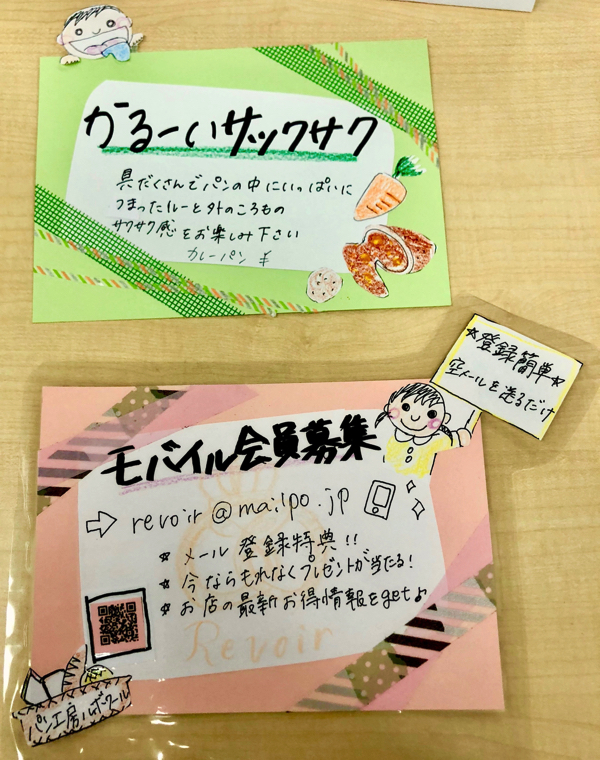 かるーいザックサク
具だくさんでパンの中にいっぱいに
つまったルーと外のころもの
サクサク感をお楽しみ下さい
カレーパン ¥
☆登録簡単☆
空メールを送るだけ
モバイル会員募集
⇨ revoir@mailpo.jp
☆ メール登録特典!!
☆ 今ならもれなくプレゼントが当たる!
☆ お店の最新お得情報をget♪
Revoir
パン工房ルボワール